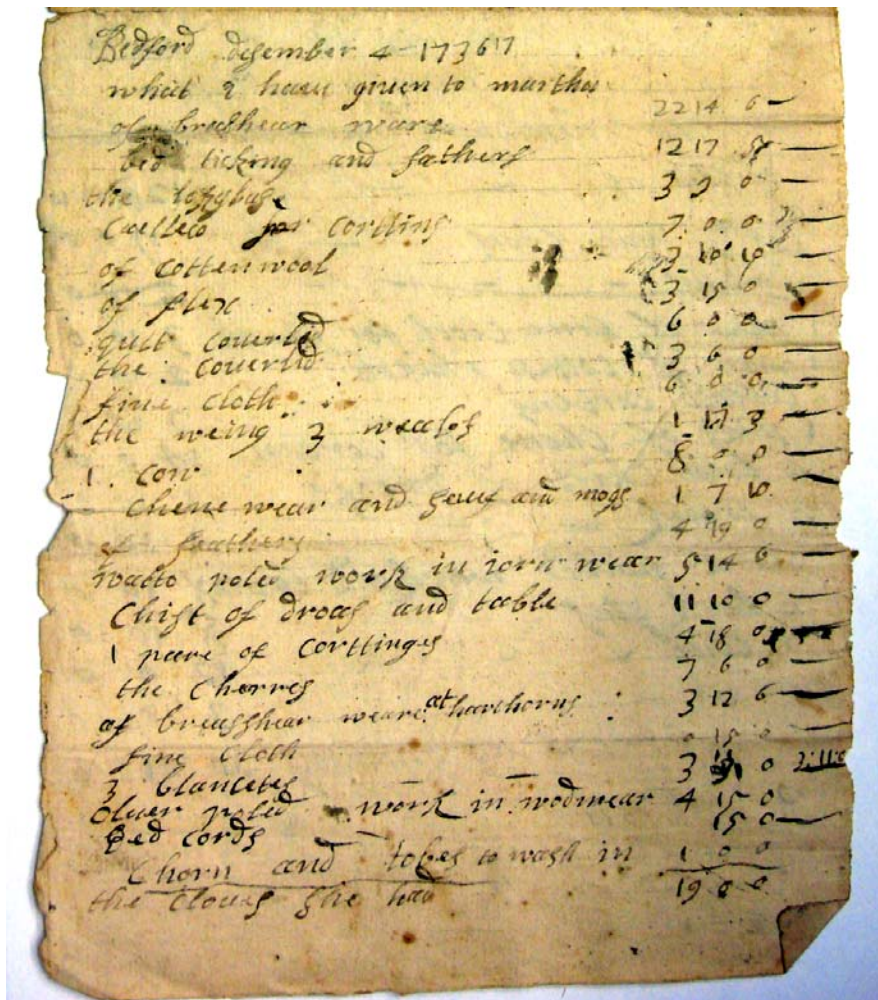 Bedford desember 4 1736
what I haeu giuen to martha
of brashear ware 22 14 6
bed ticking and fathers 12 17
the 3 0
Calleco for corttins 7 0 0
of cottenwool 3 10 10
of flex 3 15 0
quilt couerlid 6 0 0
the couerlid 3 6 0
fine cloth 6 0 0
the weing 3 1 3
1 cow 8 0 0
Chene wear and and mogs 1 7 10
of feathers 4 19 0
walto poled work in iorn wear 5 14 6
Chist of droas and table 11 10 0
1 paare of corttinges 4 18 0
the Cherres 7 6 0
of breasshear weare at harthorns 3 12 6
fine cloth 0 15 0
3 blancetes 3 0
Oluer poled work in wodwear 4 15 0
Bed cords 15 0
Chorn and tobes to wash in 1 0 0
the cloues she had 19 0 0